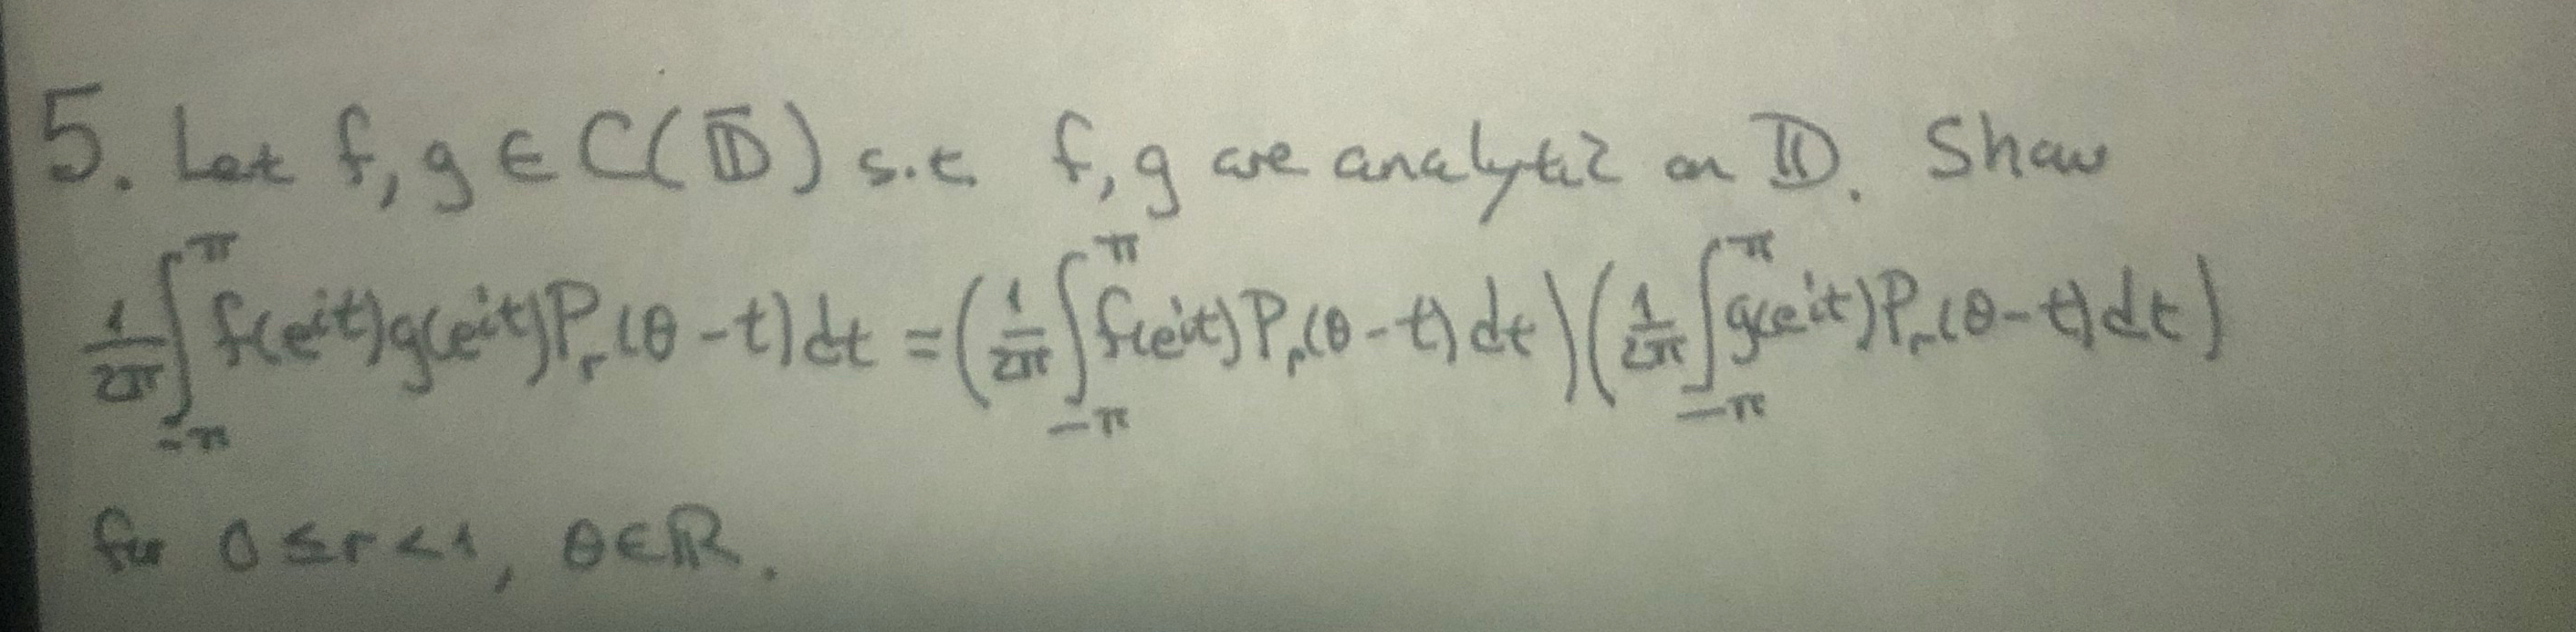 5. Let f, g ∈ C(𝔻̄) s.t. f, g are analytic on 𝔻. Show
1/2π ∫_{-π}^{π} f(e^{it})g(e^{it})P_r(θ-t)dt = (1/2π ∫_{-π}^{π} f(e^{it})P_r(θ-t)dt)(1/2π ∫_{-π}^{π} g(e^{it})P_r(θ-t)dt)
for 0 ≤ r < 1, θ ∈ ℝ.